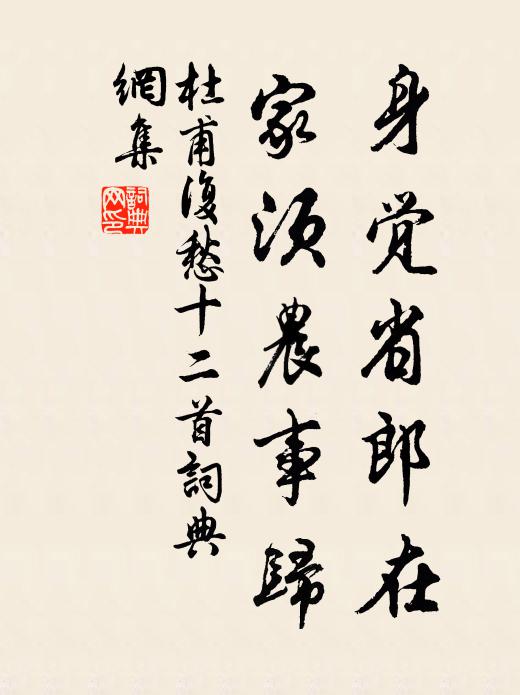 身觉省郎在
家须農事歸
杜甫復愁十二首詞典
網集
詞典
网印